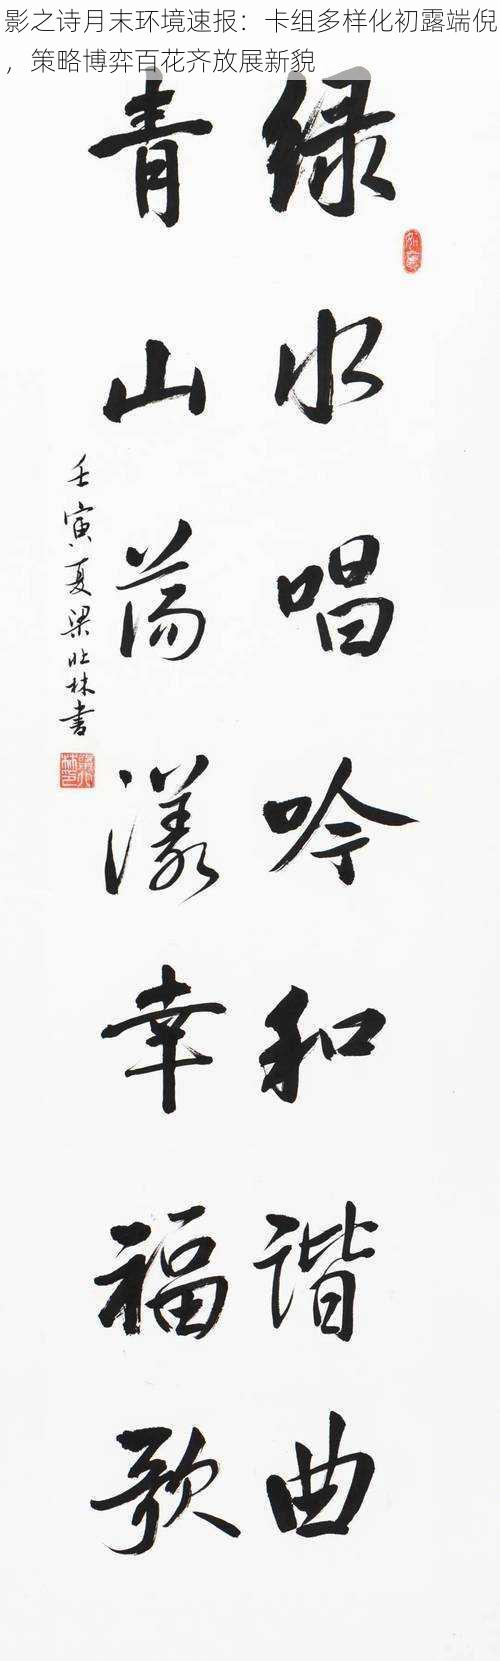 影之诗月末环境速报：卡组多样化初露端倪
，策略博弈百花齐放展新貌
绿水唱吟和谐曲
青山荡漾幸福歌
壬寅夏梁壮林书